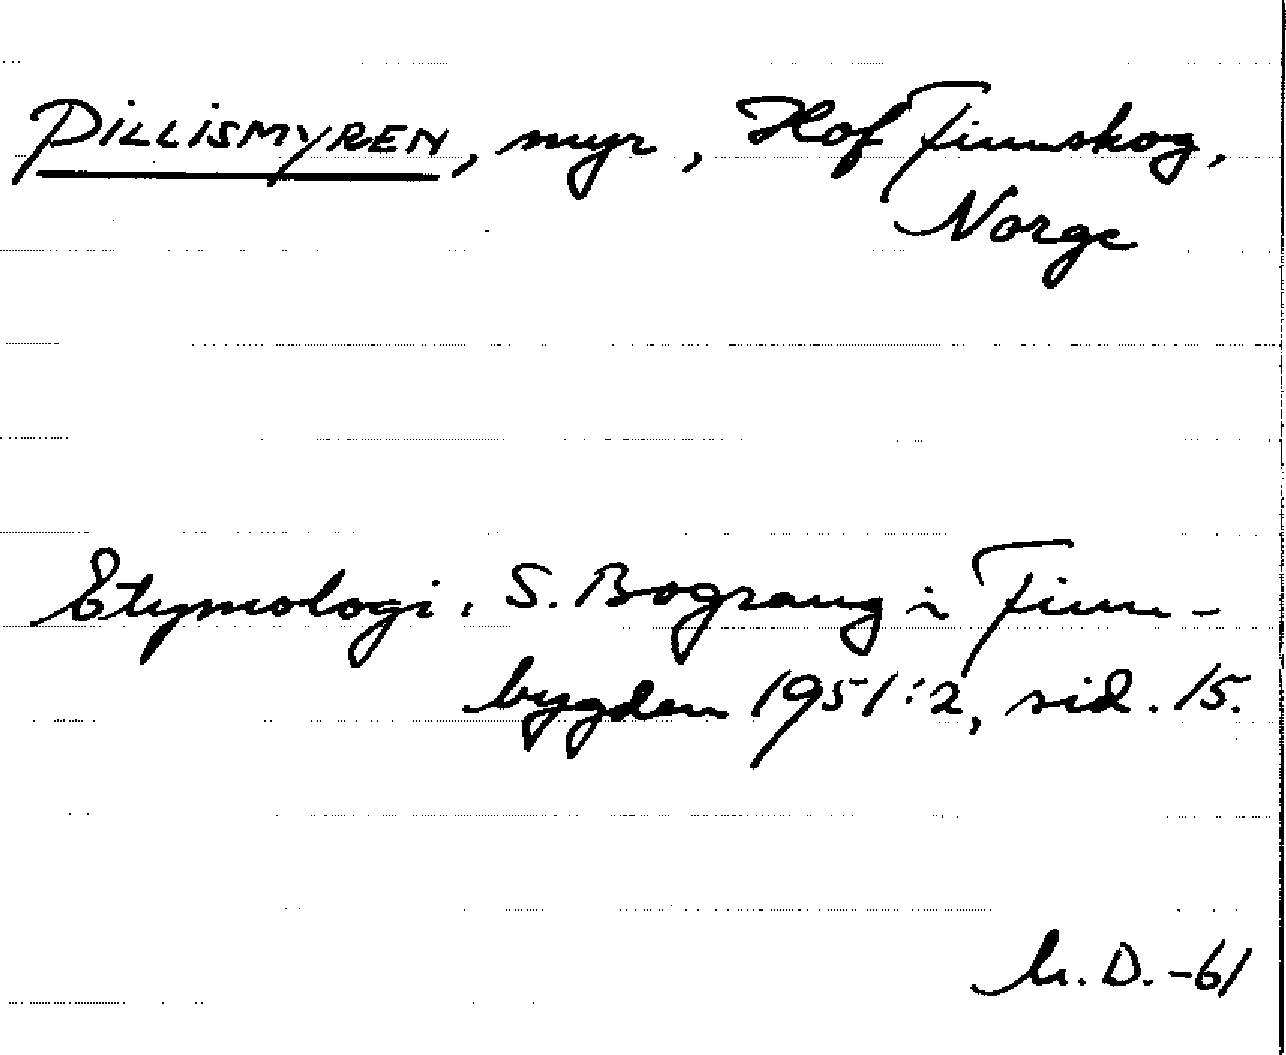 PILLISMYREN, myr, Hof Finnskog,
Norge
Etymologi, S. Bograng i Finn-
bygden 1951:2, sid. 15.
D. -61